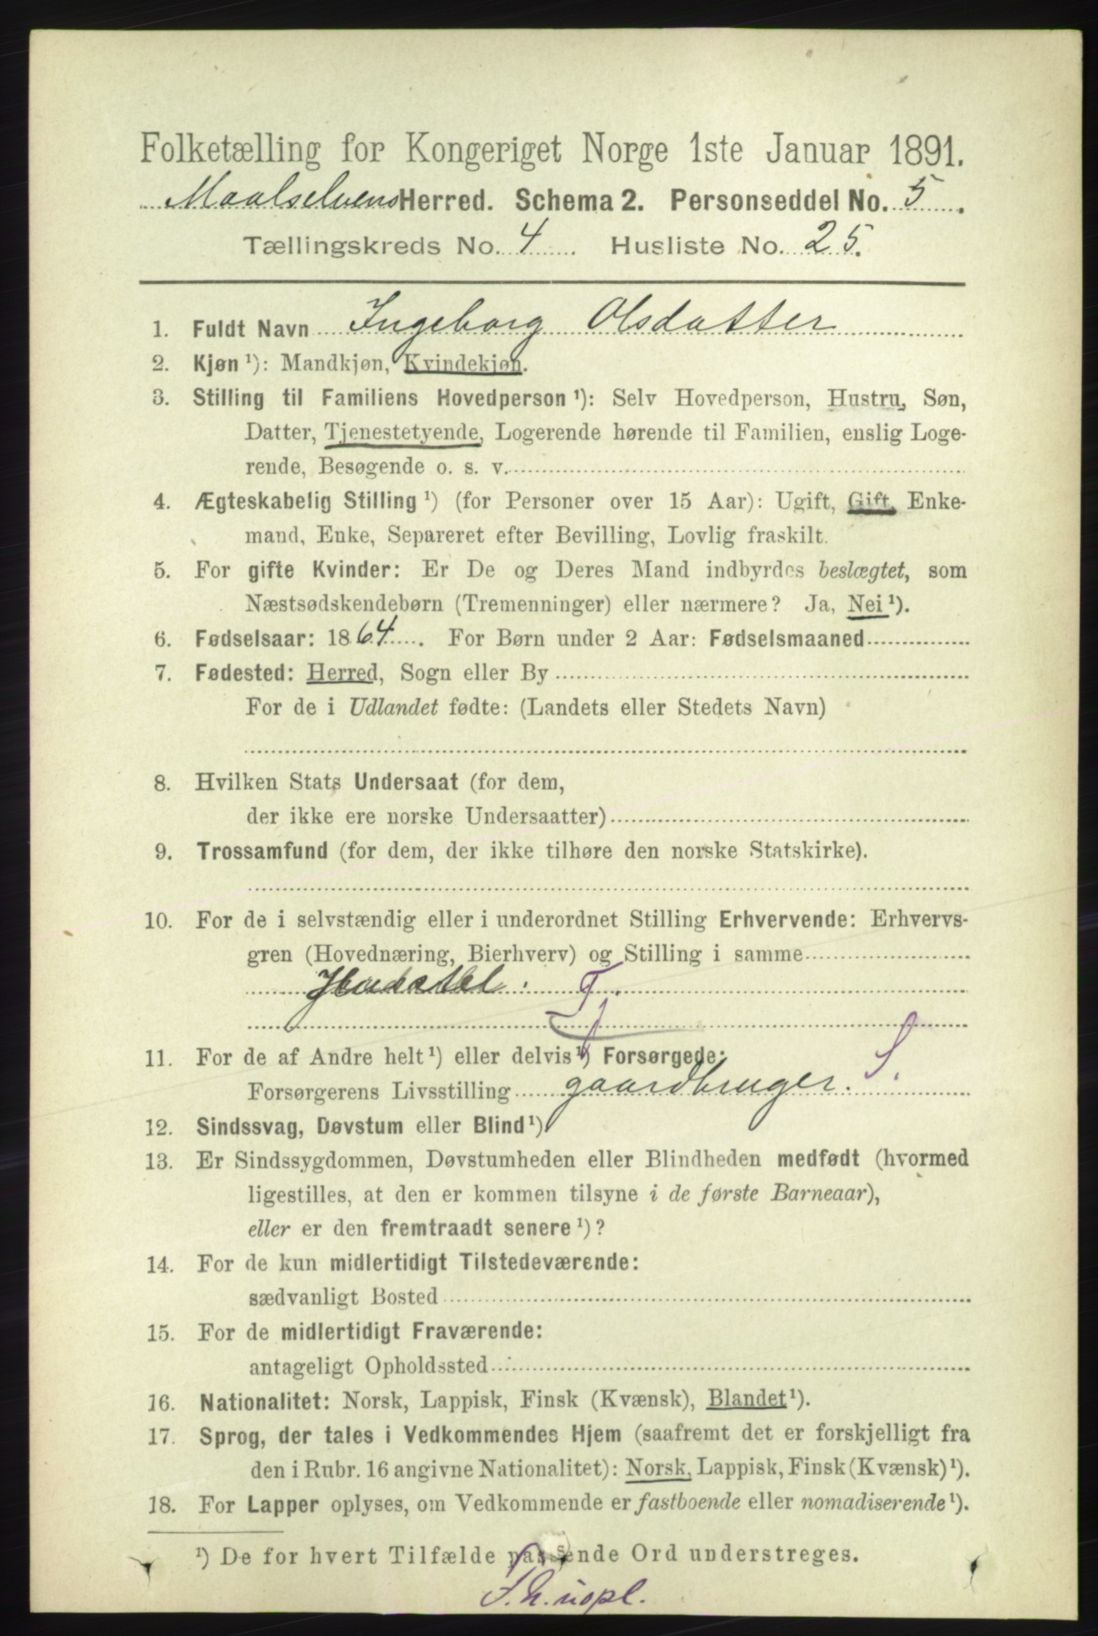 Folketælling for Kongeriget Norge 1ste Januar 1891.
Maalselvens Herred. Schema 2. Personseddel No. 5.
Tællingskreds No. 4. Husliste No. 25.
1. Fuldt Navn Ingeborg Olsdatter
2. Kjøn ¹): Mandkjøn, Kvindekjøn.
3. Stilling til Familiens Hovedperson ¹): Selv Hovedperson, Hustru, Søn,
Datter, Tjenestetyende, Logerende hørende til Familien, enslig Loge-
rende, Besøgende o. s. v.
4. Ægteskabelig Stilling ¹) (for Personer over 15 Aar): Ugift, Gift, Enke-
mand, Enke, Separeret efter Bevilling, Lovlig fraskilt.
5. For gifte Kvinder: Er De og Deres Mand indbyrdes beslægtet, som
Næstsødskendebørn (Tremenninger) eller nærmere? Ja, Nei ¹).
6. Fødselsaar: 1864. For Børn under 2 Aar: Fødselsmaaned
7. Fødested: Herred, Sogn eller By
For de i Udlandet fødte: (Landets eller Stedets Navn)
8. Hvilken Stats Undersaat (for dem,
der ikke ere norske Undersaatter)
9. Trossamfund (for dem, der ikke tilhøre den norske Statskirke).
10. For de i selvstændig eller i underordnet Stilling Erhvervende: Erhvervs-
gren (Hovednæring, Bierhverv) og Stilling i samme
Tj.
11. For de af Andre helt ¹) eller delvis ¹) Forsørgede:
Forsørgerens Livsstilling gaardbruger. S.
12. Sindssvag, Døvstum eller Blind ¹)
13. Er Sindssygdommen, Døvstumheden eller Blindheden medfødt (hvormed
ligestilles, at den er kommen tilsyne i de første Barneaar),
eller er den fremtraadt senere ¹)?
14. For de kun midlertidigt Tilstedeværende:
sædvanligt Bosted
15. For de midlertidigt Fraværende:
antageligt Opholdssted
16. Nationalitet: Norsk, Lappisk, Finsk (Kvænsk), Blandet ¹).
17. Sprog, der tales i Vedkommendes Hjem (saafremt det er forskjelligt fra
den i Rubr. 16 angivne Nationalitet): Norsk, Lappisk, Finsk (Kvænsk) ¹).
18. For Lapper oplyses, om Vedkommende er fastboende eller nomadiserende ¹).
¹) De for hvert Tilfælde passende Ord understreges.